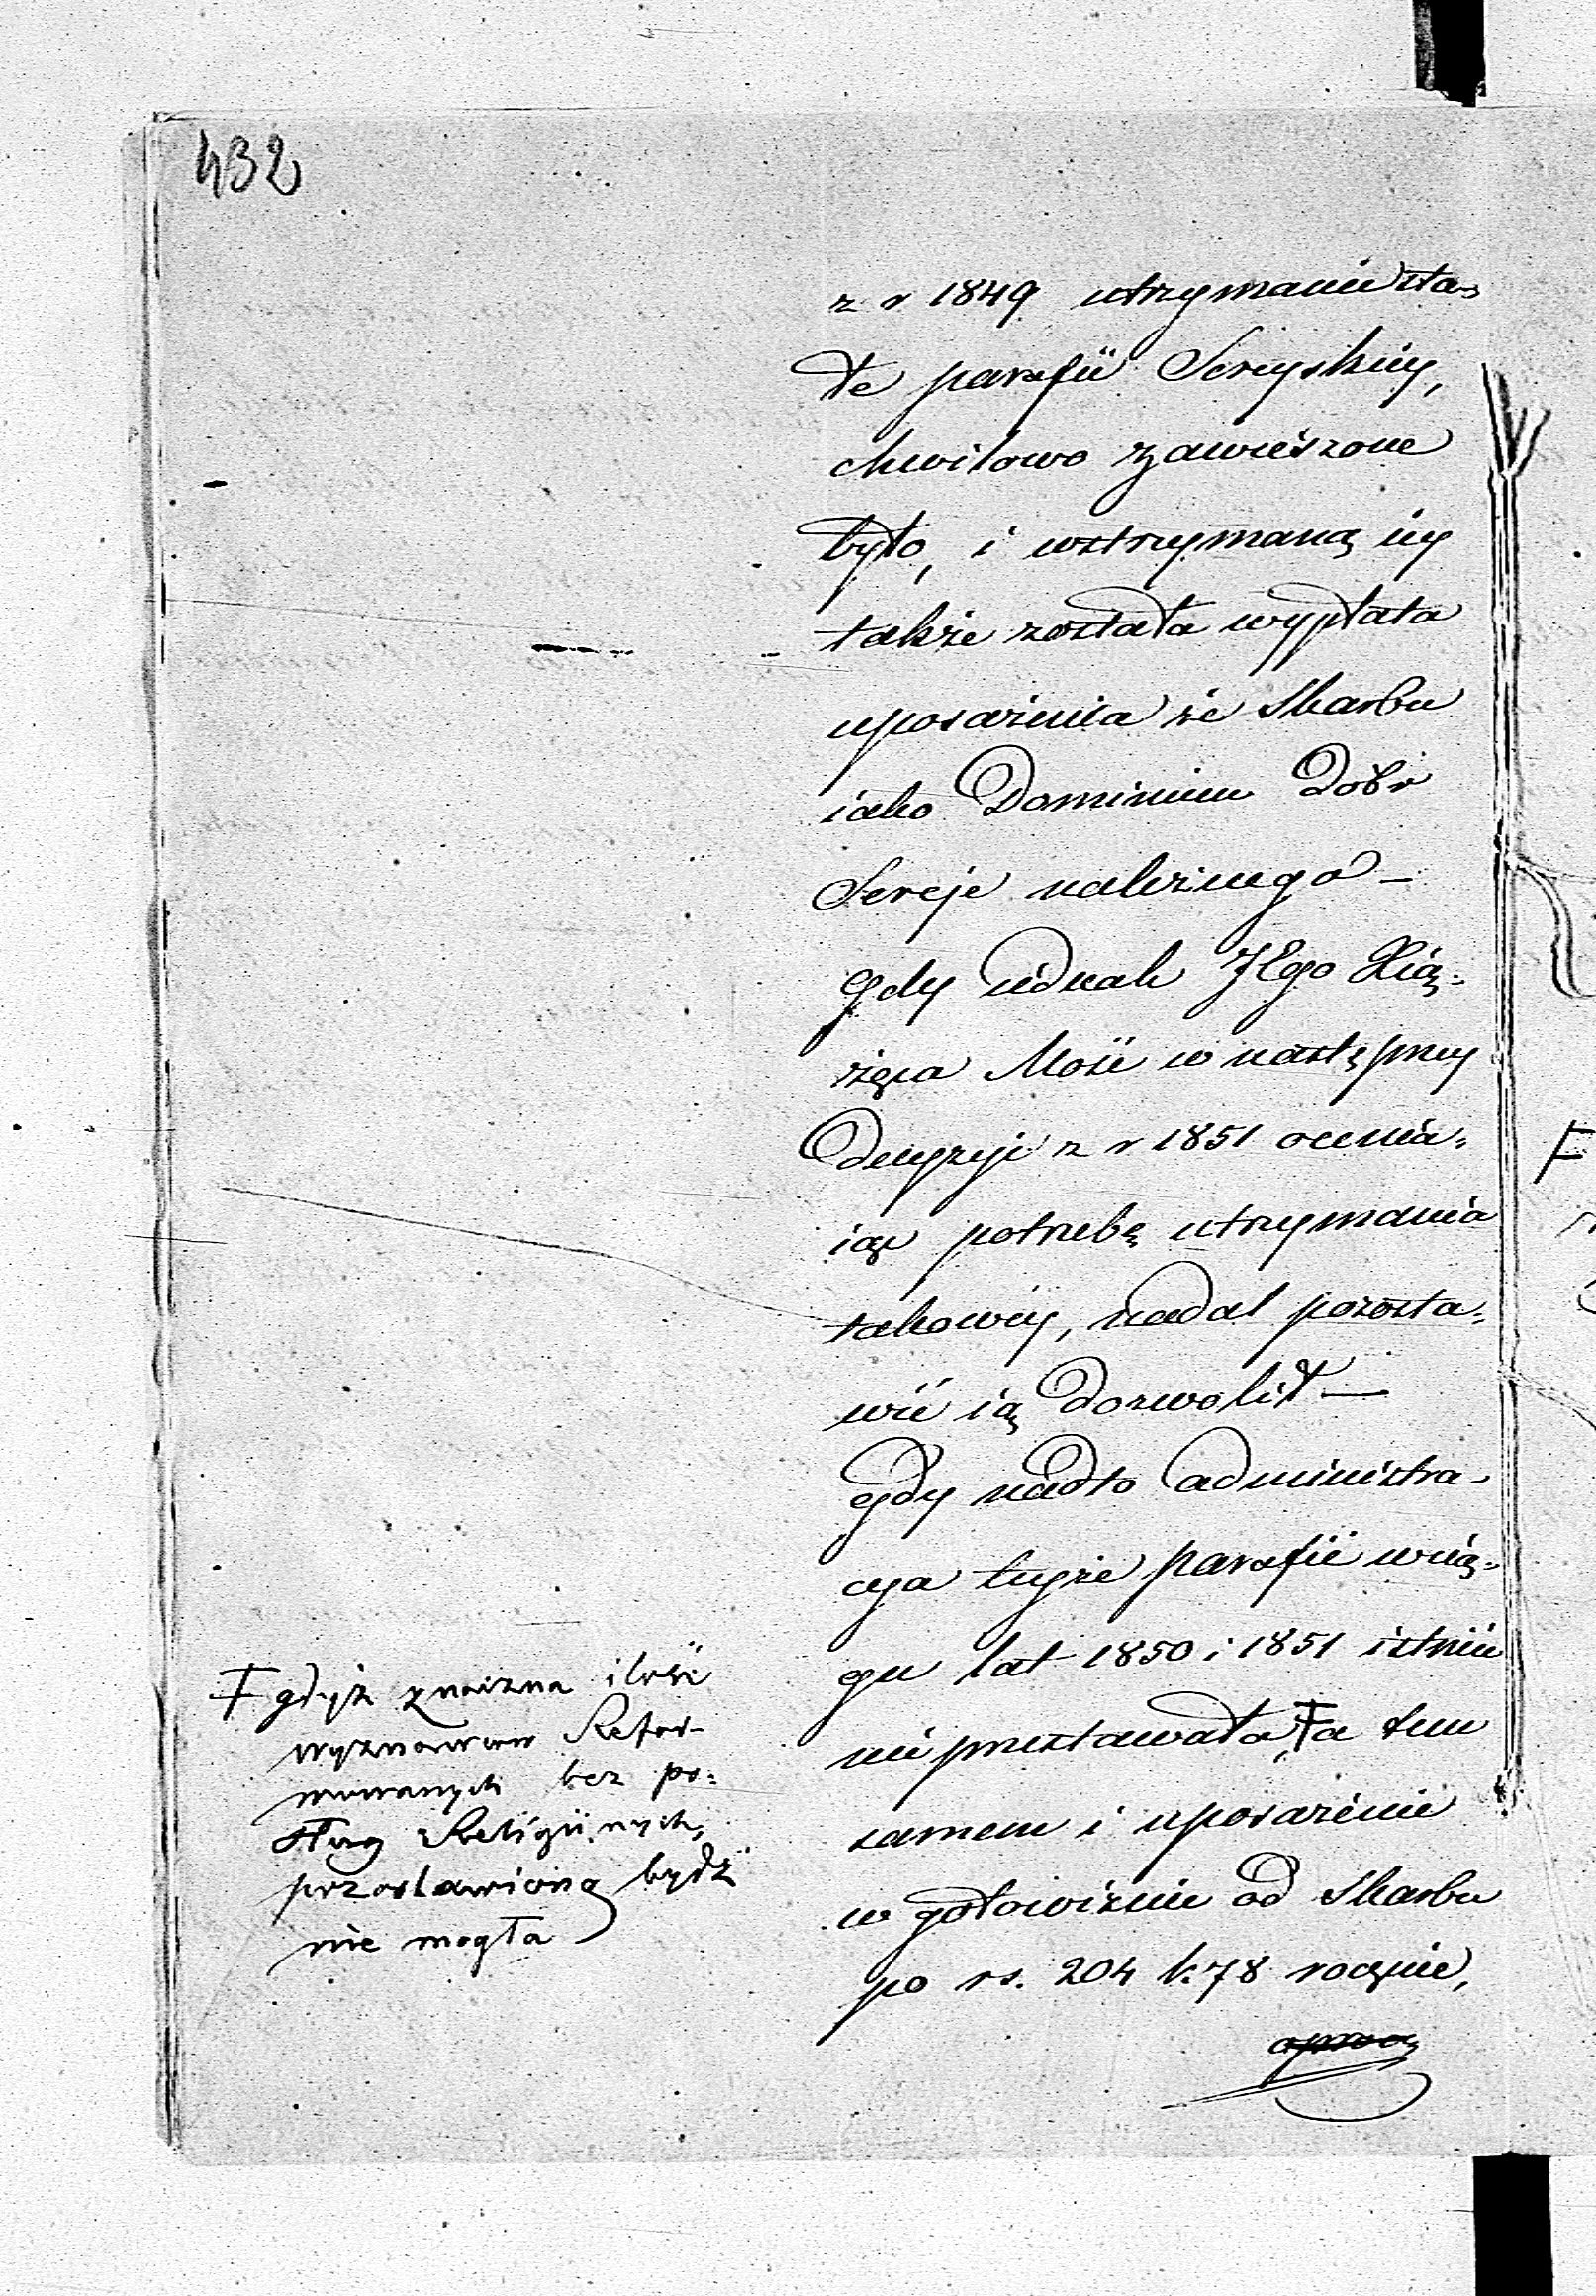 432
z r 1849 utrzymanie sta-
łe parafii Sereyskiey,
chwilowo zawieszone
było, i wstrzymaną iey
także została wypłata
uposażenia ze Skarbu
iako Dominium Dóbr
Sereje należnego —
Gdy iednak JEgo Xią-
żęca Mość w następney
Decyzyi z r 1851 ocenia-
iąc potrzebę utrzymania
takowey, nadal pozosta-
wić ią dozwolił —
gdy nadto administra-
cya teyże parafii w cią-
gu lat 1850 i 1851 istnieć
nie przestawała, Ŧ a tem
samem i uposażenie
w gotowiźnie od Skarbu
po rs. 204 k 78 rocznie,
Ŧ gdyż znaczna ilość
wyznawców Refor-
mowanych bez po-
sług Religiinych,
pozostawioną bydź
nie mogła